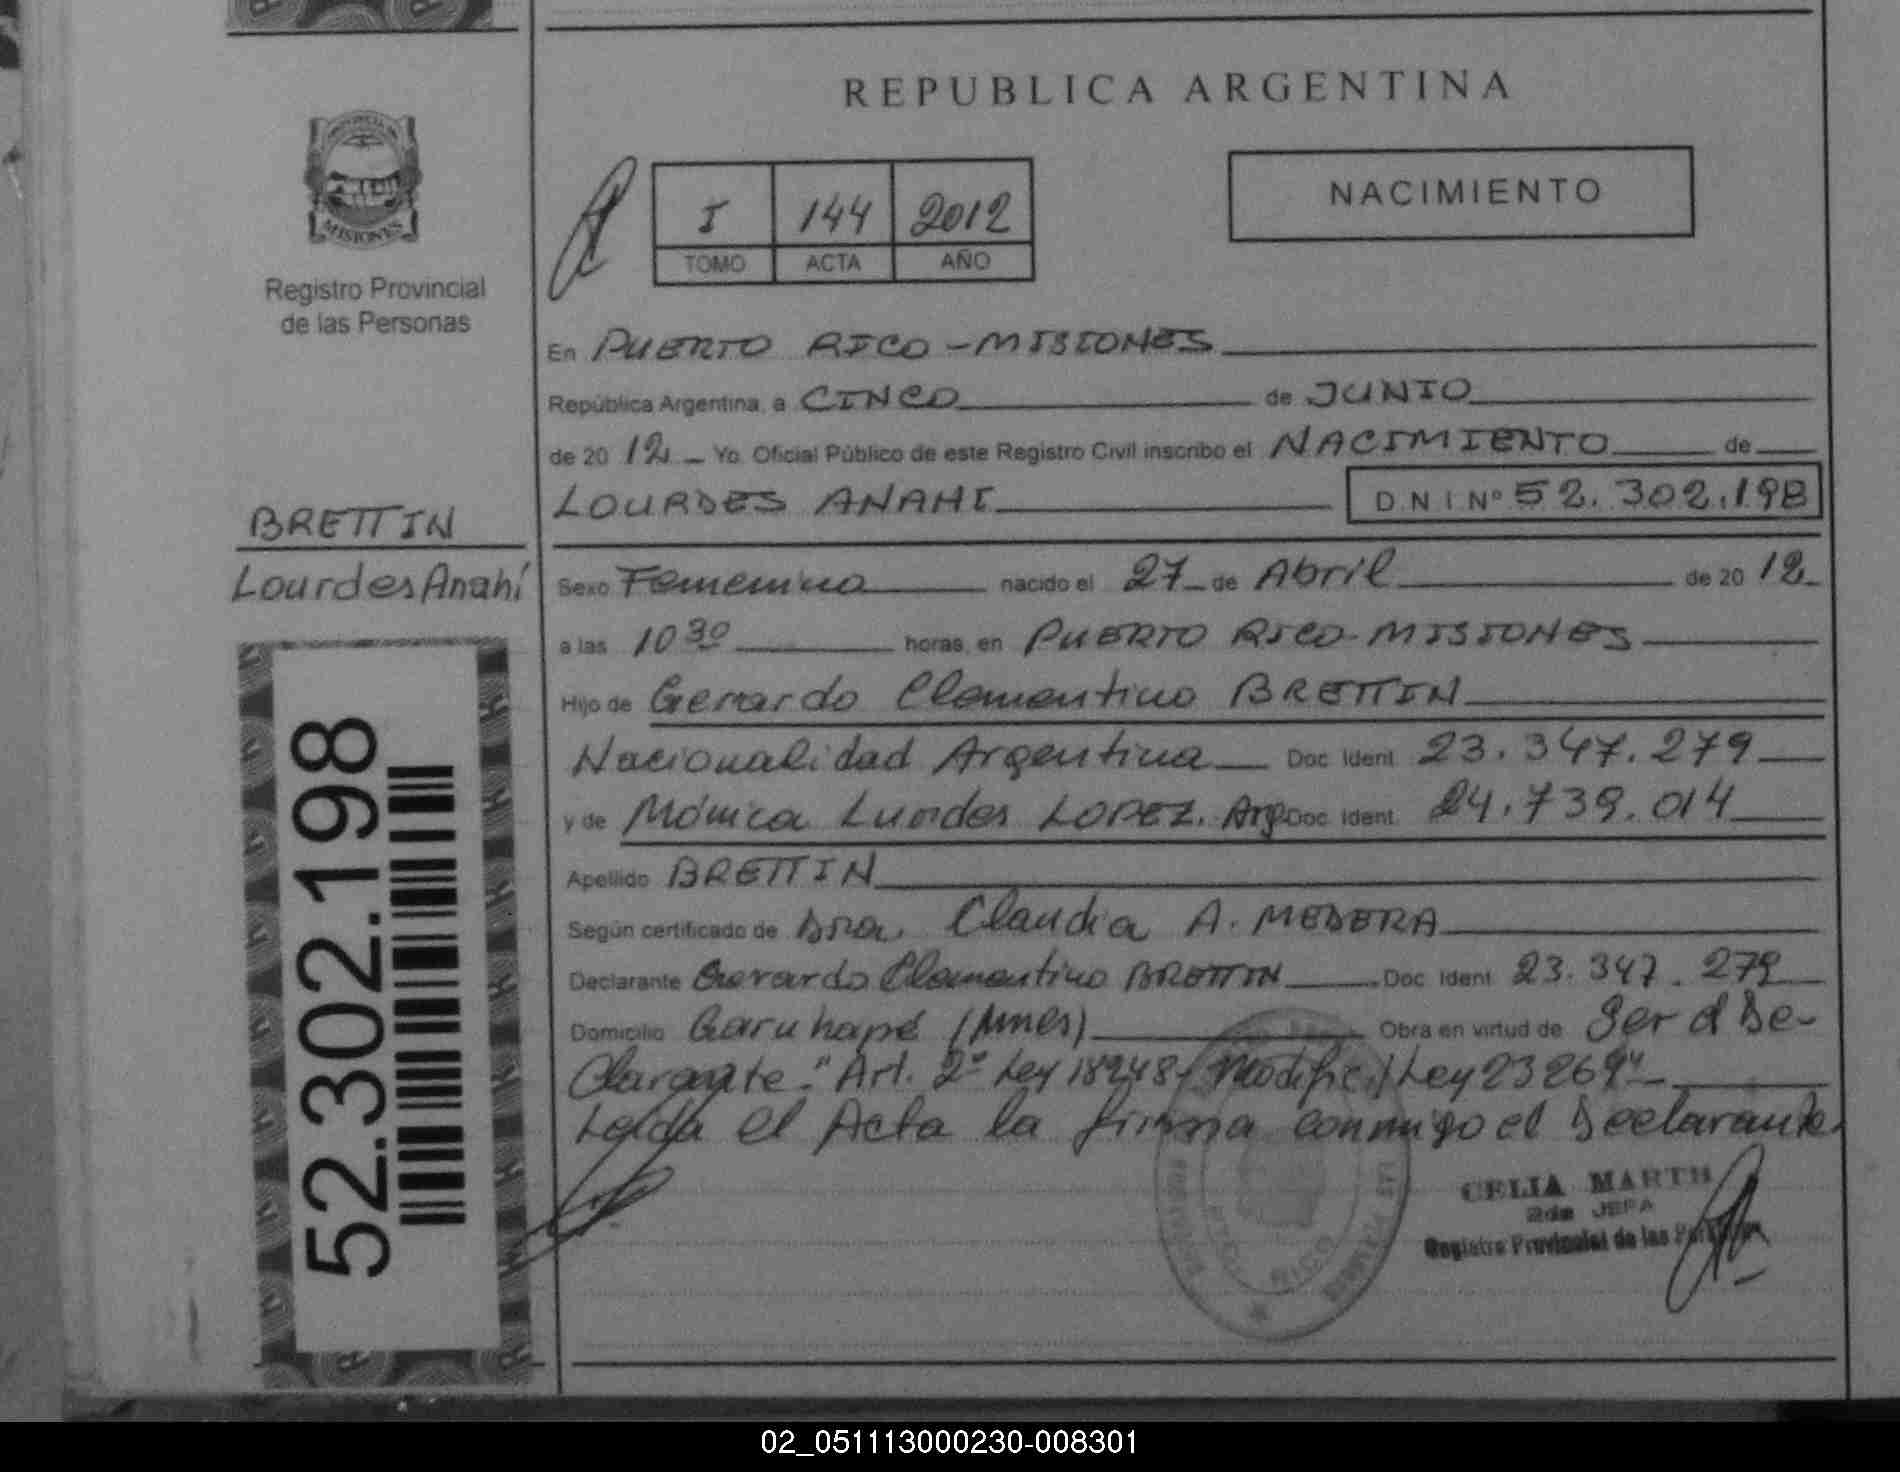 REPUBLICA ARGENTINA
PROVINCIA DE
MISIONES
Registro Provincial
de las Personas
I 144 2012
TOMO ACTA AÑO
NACIMIENTO
En PUERTO RICO - MISIONES
República Argentina, a CINCO de JUNIO
de 20 12 Yo. Oficial Público de este Registro Civil inscribo el NACIMIENTO de
LOURDES ANAHI D.N.I.Nº 52.302.198
BRETTIN
Lourdes Anahí
Sexo Femenino nacido el 27 de Abril de 20 12
a las 10 30 horas, en PUERTO RICO - MISIONES
Hijo de Gerardo Clementino BRETTIN
Nacionalidad Argentina Doc. Ident. 23.347.279
y de Mónica Lurdes LOPEZ. Arg Doc. Ident. 24.739.014
Apellido BRETTIN
Según certificado de Dra. Claudia A. MEDERA
Declarante Gerardo Clementino BRETTIN Doc. Ident. 23.347.279
Domicilio Garuhapé (Mnes) Obra en virtud de Ser el De-
clarante. "Art. 2º Ley 18248 / Modific. / Ley 23264"
Leída el Acta la firma conmigo el Declarante.
52.302.198
CELIA
2da JEFA
Registro Provincial de las
RICO
02_051113000230-008301